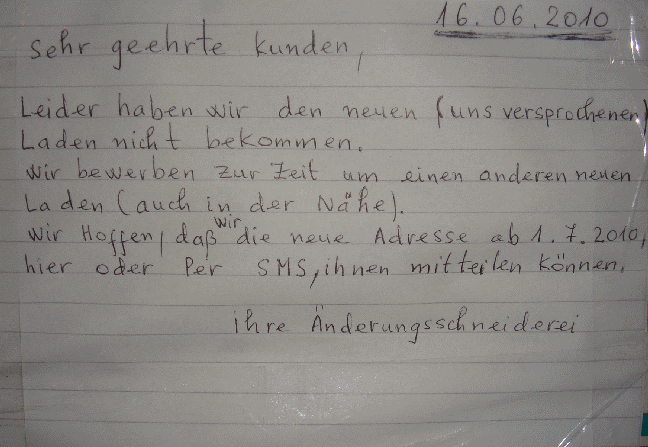 16.06.2010
Sehr geehrte kunden,
Leider haben wir den neuen (uns versprochenen)
Laden nicht bekommen.
wir bewerben zur Zeit um einen anderen neuen
Laden (auch in der Nähe).
wir Hoffen, daß wir die neue Adresse ab 1.7.2010,
hier oder Per SMS, ihnen mitteilen können.
ihre Änderungsschneiderei